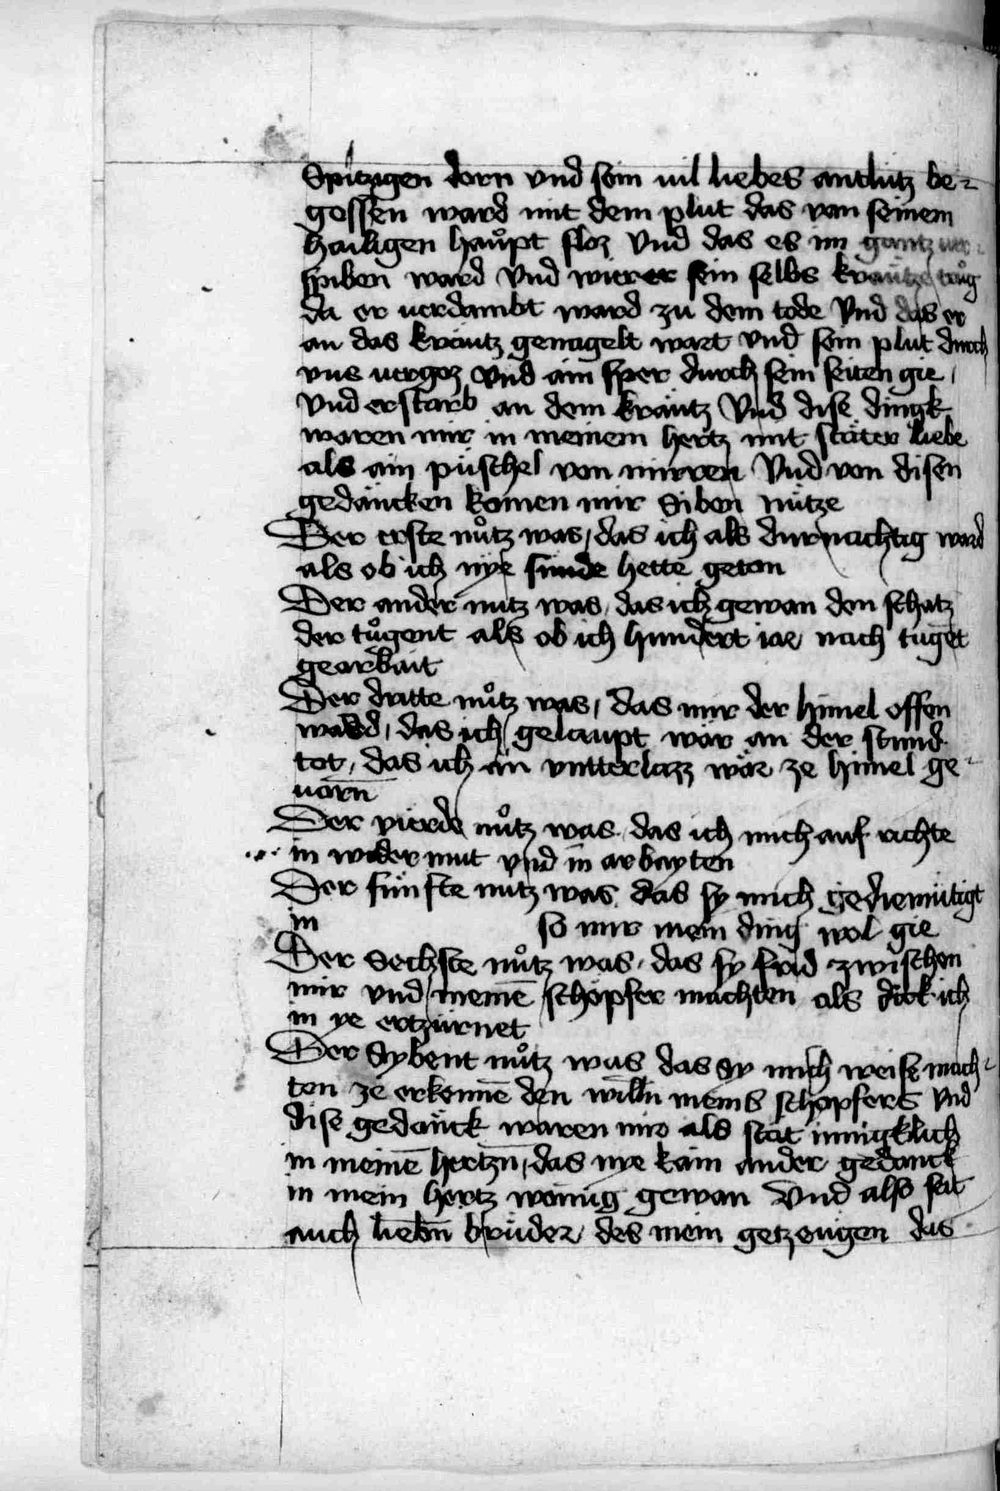 Spitzigen dorn vnd sein uil liebes antlutz be-
gossen ward mit dem plut das van seinem
hailigen haůpt floz Vnd das es im gantz uer-
spiben ward Vnd wie er sein selbs kräutze trůg
da er uerdambt ward zu dem tode Vnd das er
an das kräutz genagelt wart vnd sein plut durch
vns uergoz Vnd ain sper durch sein seiten gie,
Vnd erstarb an dem kräutz Vnd dise dingk
waren mir in meinem hertz mit stäter liebe
als ain püschel von mirren Vnd von disen
gedäncken komen mir Siben nütze
Der erste nůtz was, das ich als durnächtig ward
als ob ich nye sünde hette getan
Der ander nutz was, das ich gewan den schatz
der tůgent als ob ich hundert iar nach tugēt
gearbait
Der dritte nůtz was, das mir der himel offen
ward, das ich gelaupt wär an der stund
tot, das ich än vntterlazz wär ze himel ge-
uarn̄
Der vierde nůtz was, das ich mich auf richte
in wider mut vnd in arbayten
Der fünfte nutz was das sy mich gediemütigt
in so mir mein ding wol gie
Der Sechste nůtz was, das sy frid zwischen
mir vnd meinē schöpfer machten als dick ich
in ye ertzürnet
Der Sybent nůtz was das sy mich weise mach-
ten ze erkennē den willn̄ meins schöpfers Vnd
dise gedänck waren mir als stät innigklich
in meinē hertzn̄, das nye kain ander gedanck
in mein hertz wonüg gewan Vnd also seit
auch liebn̄ brüder, des mein getzeugen das